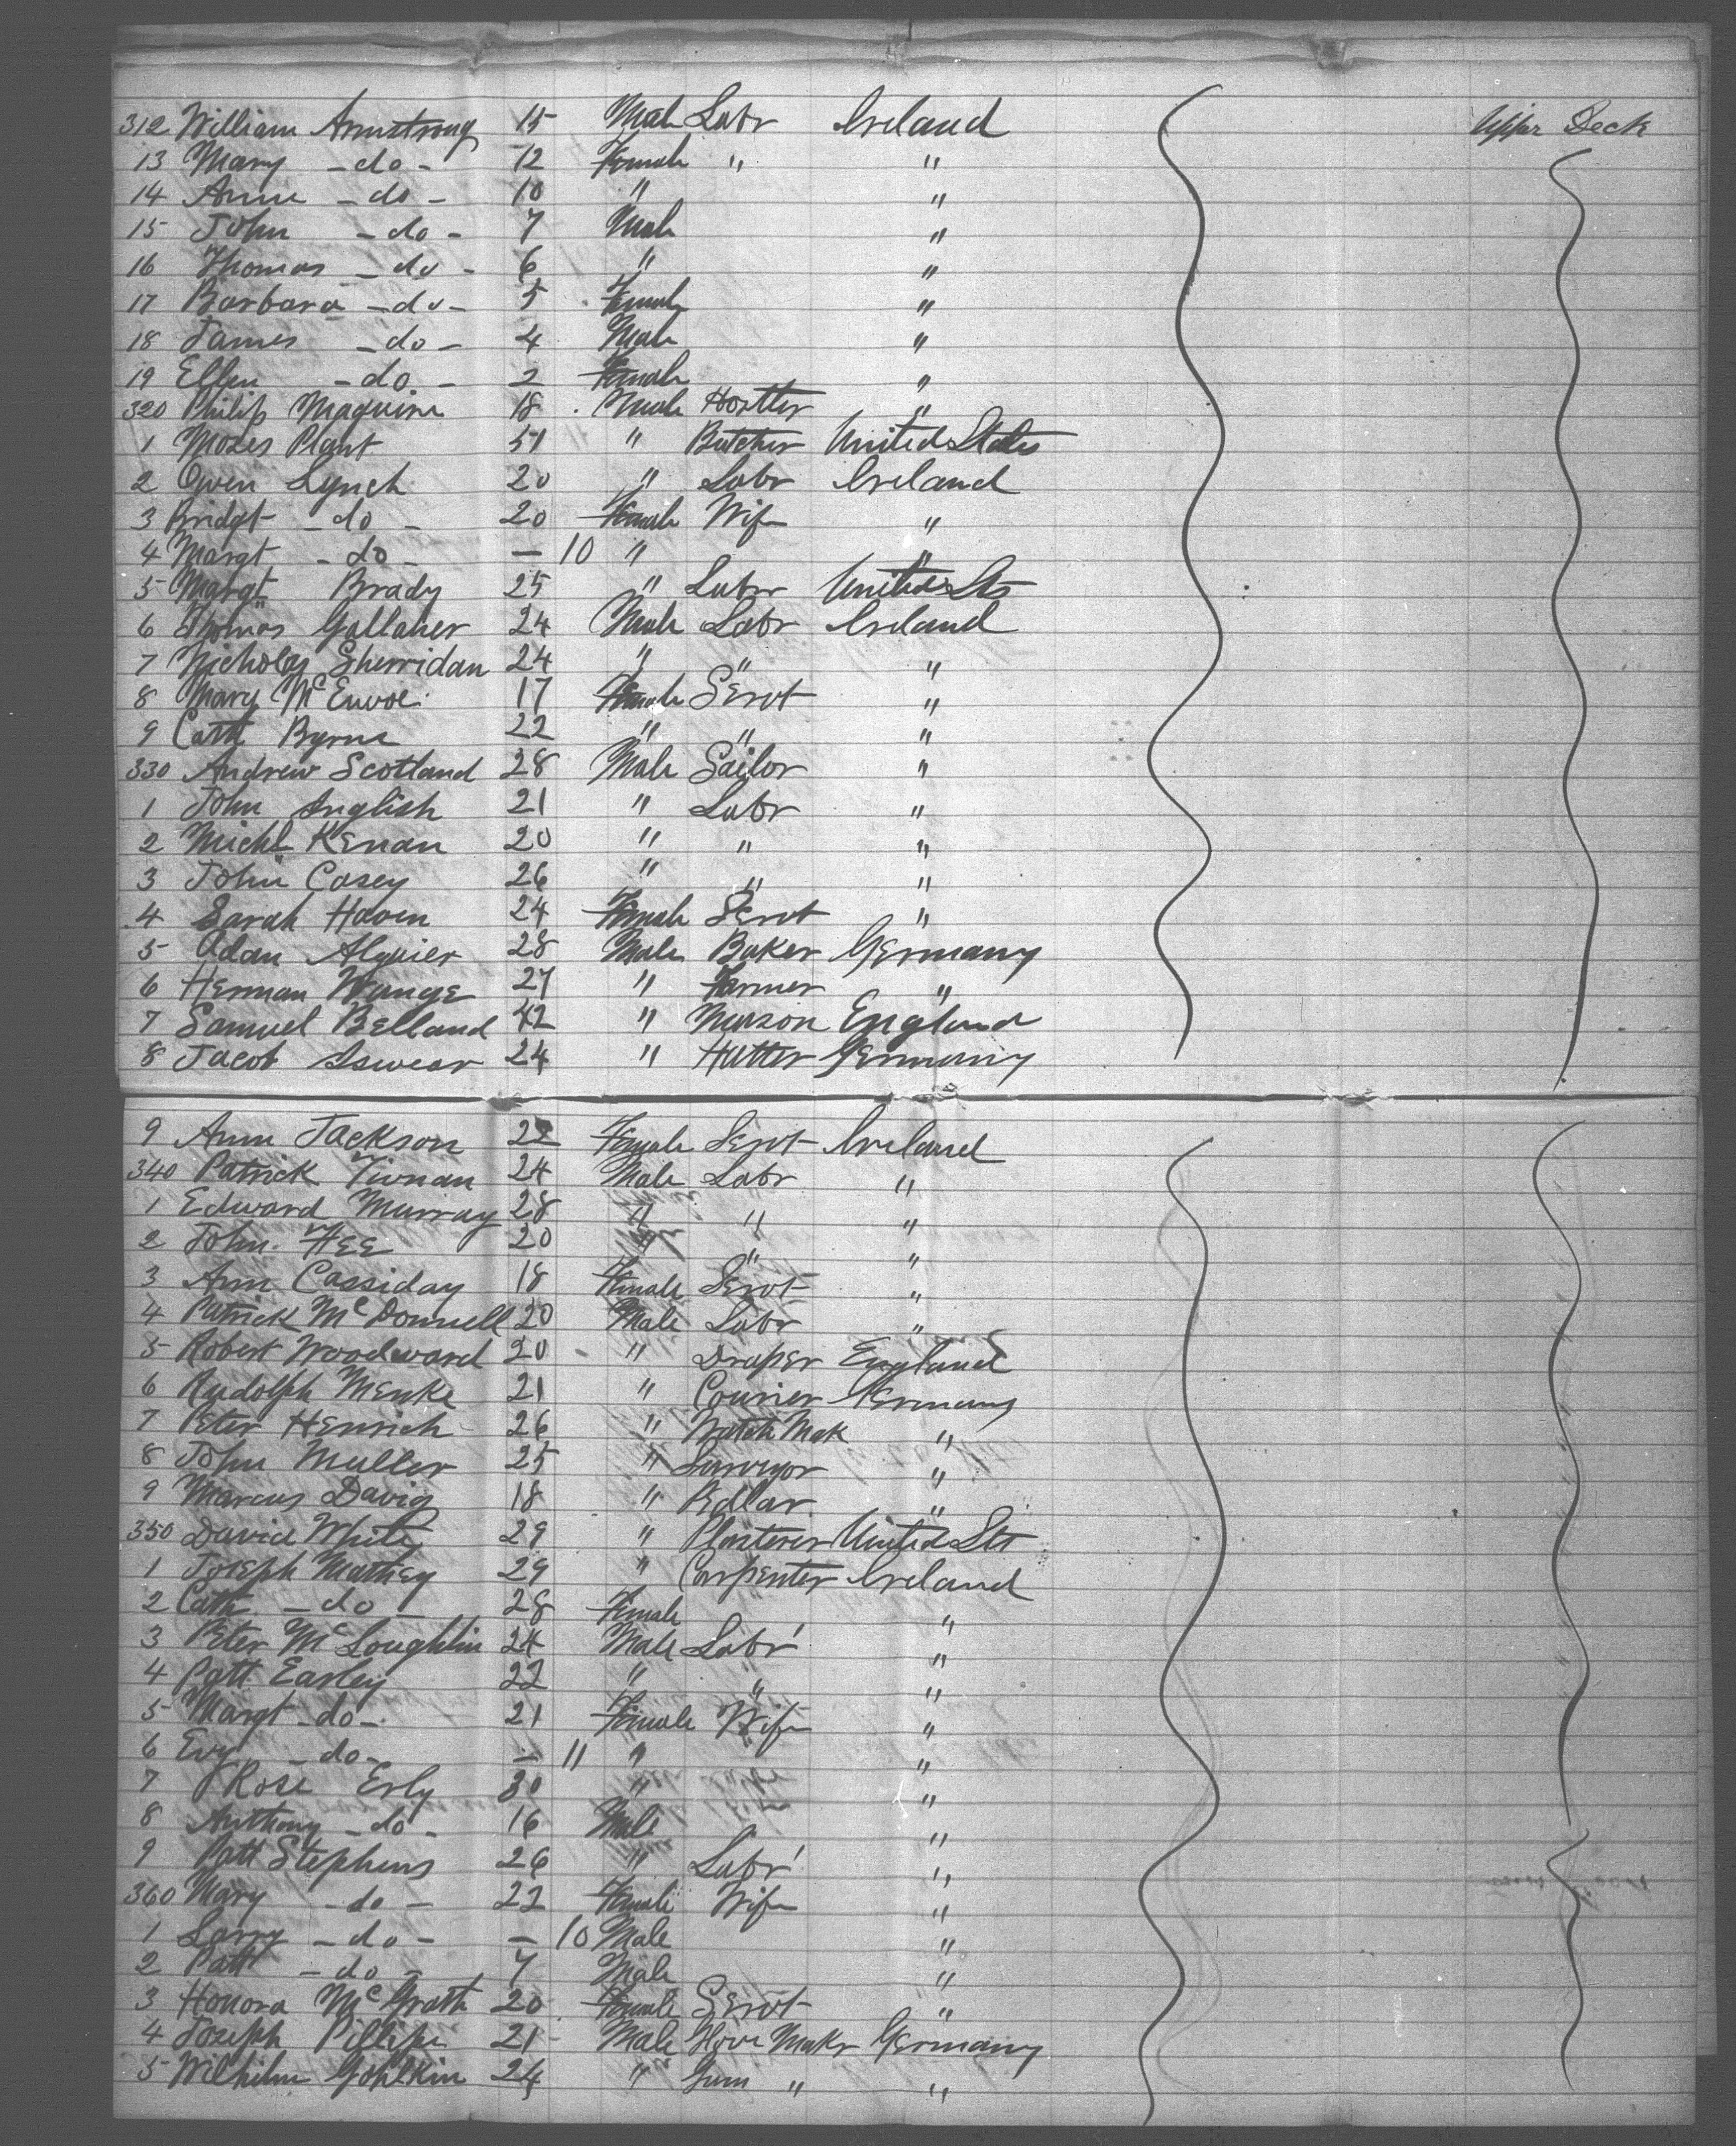 312 William Armstrong 15 Male Labr Ireland Upper Deck
13 Mary - do - 12 Female " "
14 Anne - do - 10 " "
15 John - do - 7 Male "
16 Thomas - do - 6 " "
17 Barbara - do - 5 Female "
18 James - do - 4 Male "
19 Ellen - do - 2 Female "
320 Philip Maguire 18 Male Hostler "
1 Mozes Plant 51 " Butcher United States
2 Owen Lynch 20 " Labr Ireland
3 Bridgt - do - 20 Female Wife "
4 Margt - do - — 10 " "
5 Margt Brady 25 " Labr United Sts
6 Thomas Gallaher 24 Male Labr Ireland
7 Nicholas Sherridan 24 " " "
8 Mary McEnvoe 17 Female Servt "
9 Cath Byrne 22 " " "
330 Andrew Scotland 28 Male Sailor "
1 John English 21 " Labr "
2 Michl Kenan 20 " " "
3 John Casey 26 " " "
4 Sarah Haven 24 Female Servt "
5 Adam Alguier 28 Male Baker Germany
6 Herman Wange 27 " Farmer "
7 Samuel Belland 42 " Mason England
8 Jacob 24 " Hatter Germany
9 Ann Jackson 22 Female Servt Ireland
340 Patrick Tivnan 24 Male Labr "
1 Edward Murray 28 " " "
2 John Hee 20 " " "
3 Ann Cassiday 18 Female Servt "
4 Patrick McDonnell 20 Male Labr "
5 Robert Woodward 20 " Draper England
6 Rudolph Menke 21 " Courier Germany
7 Peter Henrich 26 " Watch Mak "
8 John Muller 25 " Surveyor "
9 Marcus David 18 " Pedlar "
350 David White 29 " Plasterer United Sts
1 Joseph Mathey 29 " Carpenter Ireland
2 Cath - do - 28 Female "
3 Peter McLoughlin 24 Male Labr "
4 Patt Earley 22 " " "
5 Margt - do - 21 Female Wife "
6 Evy - do - — 11 " "
7 Rose Erly 30 " "
8 Anthony - do - 16 Male "
9 Patt Stephens 26 " Labr "
360 Mary - do - 22 Female Wife "
1 Larry - do - — 10 Male "
2 Patt - do - 7 Male "
3 Honora McGrath 20 Female Servt "
4 Joseph 21 Male Maker Germany
5 Wilhilm Gohlkin 24 " " "